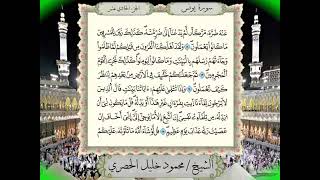 سورة يونس الجزء الحادي عشر
عَنْهُ ضُرَّهُ مَرَّ كَأَن لَّمْ يَدْعُنَا إِلَىٰ ضُرٍّ مَّسَّهُ كَذَٰلِكَ زُيِّنَ لِلْمُسْرِفِينَ
مَا كَانُوا يَعْمَلُونَ وَلَقَدْ أَهْلَكْنَا الْقُرُونَ مِن قَبْلِكُمْ لَمَّا ظَلَمُوا
وَجَاءَتْهُمْ رُسُلُهُم بِالْبَيِّنَاتِ وَمَا كَانُوا لِيُؤْمِنُوا كَذَٰلِكَ نَجْزِي الْقَوْمَ
الْمُجْرِمِينَ ثُمَّ جَعَلْنَاكُمْ خَلَائِفَ فِي الْأَرْضِ مِن بَعْدِهِمْ لِنَنظُرَ
كَيْفَ تَعْمَلُونَ وَإِذَا تُتْلَىٰ عَلَيْهِمْ آيَاتُنَا بَيِّنَاتٍ قَالَ الَّذِينَ
لَا يَرْجُونَ لِقَاءَنَا ائْتِ بِقُرْآنٍ غَيْرِ هَٰذَا أَوْ بَدِّلْهُ قُلْ مَا يَكُونُ لِي أَنْ
أُبَدِّلَهُ مِن تِلْقَاءِ نَفْسِي إِنْ أَتَّبِعُ إِلَّا مَا يُوحَىٰ إِلَيَّ إِنِّي أَخَافُ إِنْ
عَصَيْتُ رَبِّي عَذَابَ يَوْمٍ عَظِيمٍ قُل لَّوْ شَاءَ اللَّهُ مَا تَلَوْتُهُ عَلَيْكُمْ
الشيخ / محمود خليل الحصري